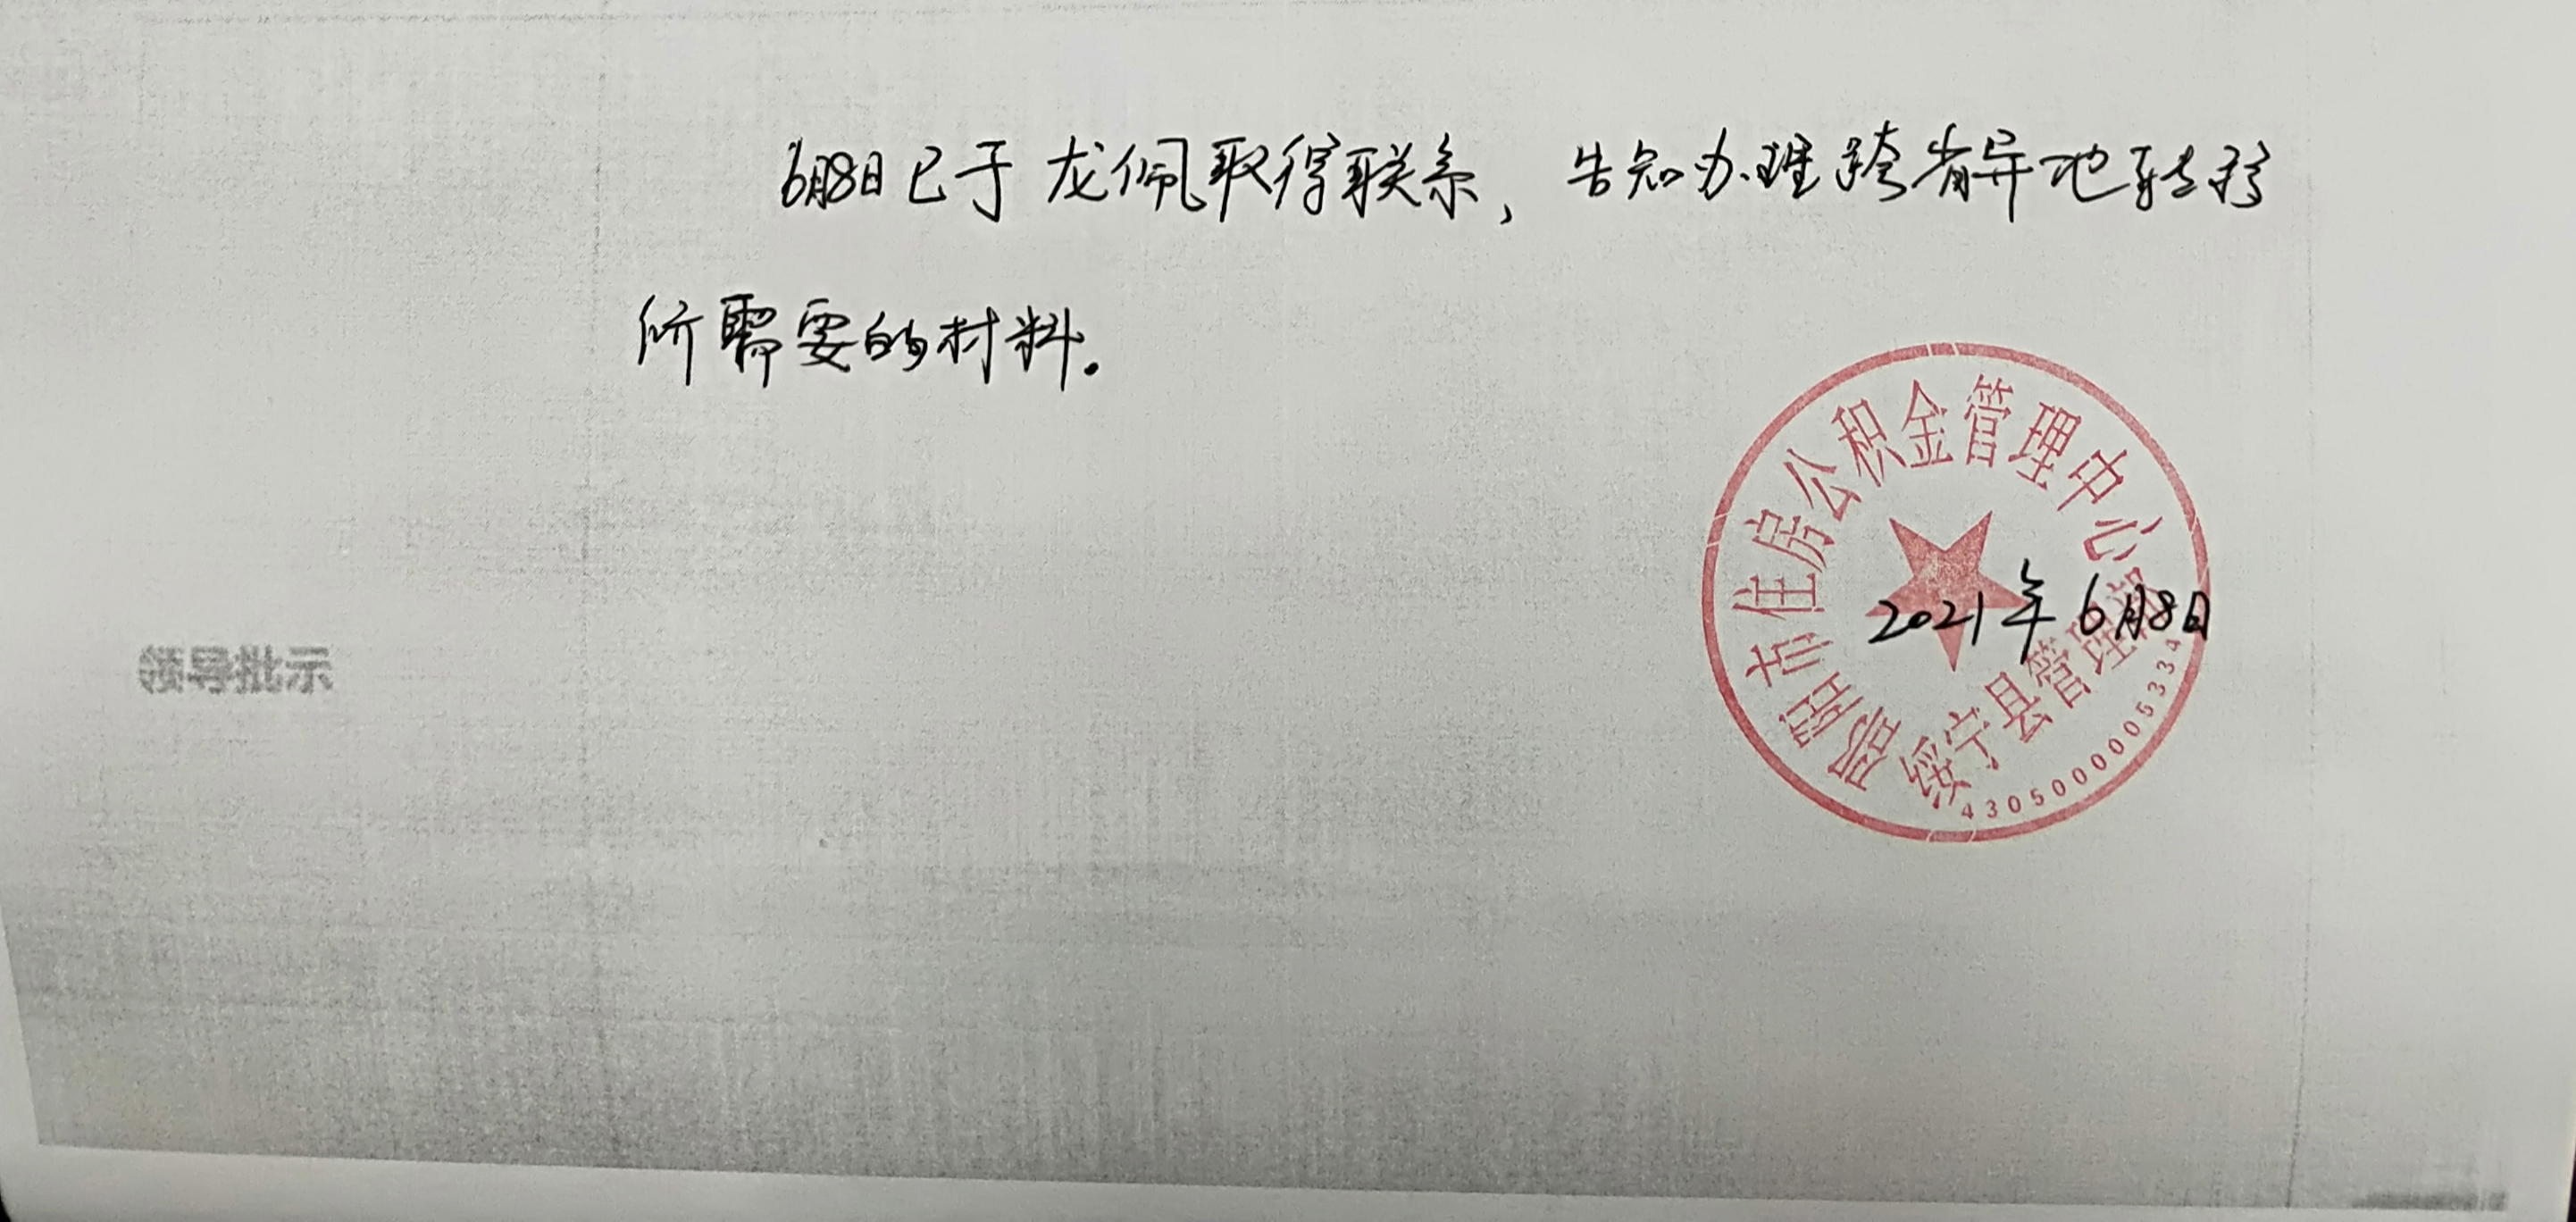 6月8日已于龙佩取得联系，告知办理跨省异地转移
所需要的材料。
邵阳市住房公积金管理中心
2021年6月8日
绥宁县管理部
4305000005334
领导批示